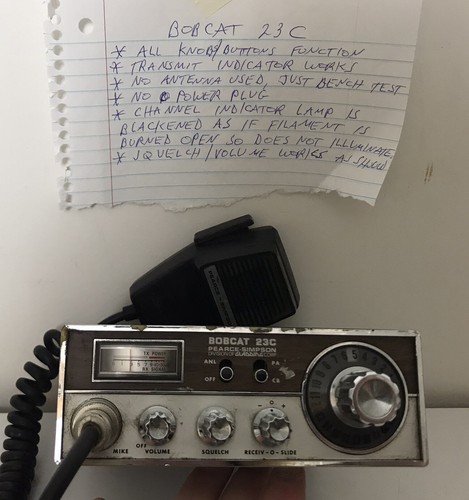 BOBCAT 23C
* ALL KNOBS/BUTTONS FUNCTION
* TRANSMIT INDICATOR WORKS
* NO ANTENNA USED, JUST BENCH TEST
* NO POWER PLUG
* CHANNEL INDICATOR LAMP IS
BLACKENED AS IF FILAMENT IS
BURNED OPEN SO DOES NOT ILLUMINATE
* SQUELCH/VOLUME WORKS AS SHOULD
PEARCE-SIMPSON
BOBCAT 23C
PEARCE-SIMPSON
DIVISION OF GLADDING CORP.
TX POWER
ANL PA
OFF CB
MIKE OFF VOLUME SQUELCH RECEIV-O-SLIDE